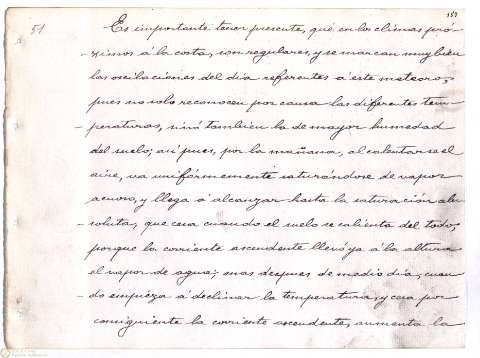 157
51
Es importante tener presente, qué en los climas pró-
ximos á la costa, son regulares, y se marcan muy bien
las oscilaciones del dia referentes á este meteoro,
pues no solo reconocen por causa las diferentes tem-
peraturas, sinó tambien la de mayor humedad
del suelo; asi pues, por la mañana, al calentarse el
aire, va uniformemente saturándose de vapor
acuoso, y llega á alcanzar hasta la saturación ab-
soluta, que cesa cuando el suelo se calienta del todo,
porque la corriente ascendente llevó ya á la altura
el vapor de agua; mas despues de medio dia, cuan-
do empieza á declinar la temperatura, y cesa por
consiguiente la corriente ascendente, aumenta la